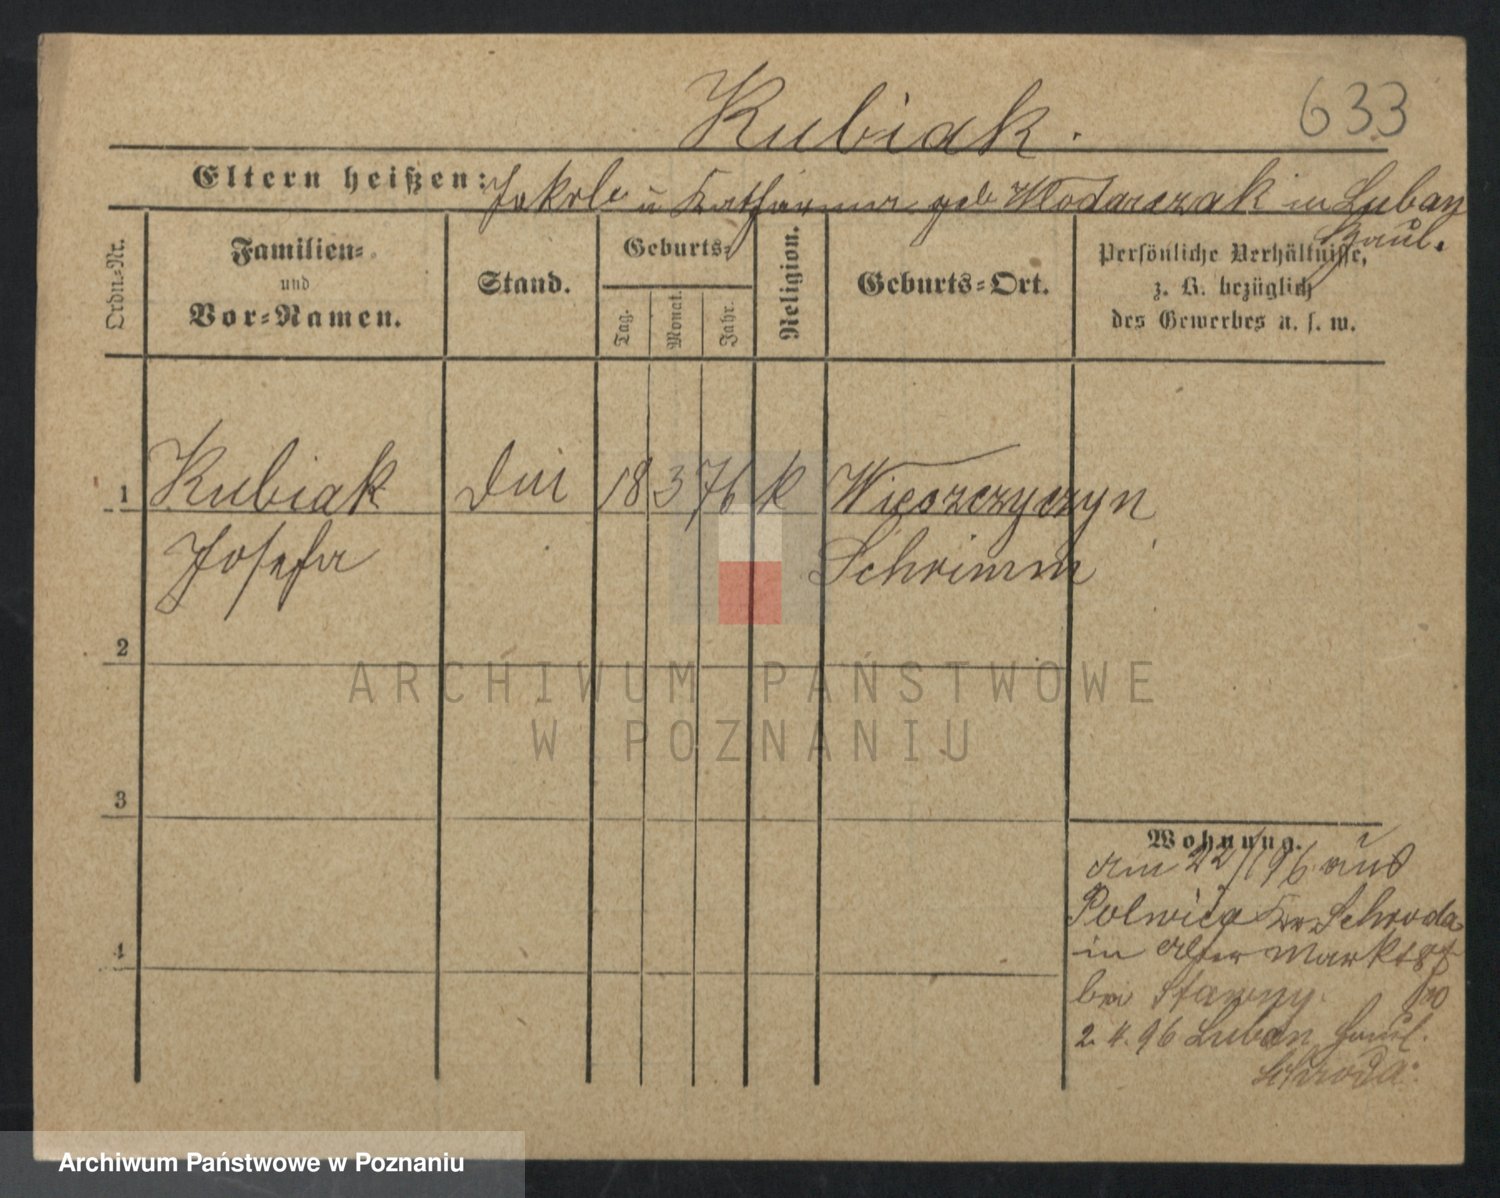 Kubiak.
633
Eltern heißen: Jakob u Katharina geb Wlodarczak in Luban
Haul.
Ordn.-Nr.
Familien-
und
Vor-Namen.
Stand.
Geburts-
Tag.
Monat.
Jahr.
Religion.
Geburts-Ort.
Persönliche Verhältnisse,
z. B. bezüglich
des Gewerbes u. s. w.
1 Kubiak Dni 18 3 76 k Wieszczyczyn
Josefa Schrimm
2
ARCHIWUM PAŃSTWOWE
W POZNANIU
3
Wohnung.
am 22/1 96 aus
Polwica Kr Schroda
in Alter Markt
bei
4
2. 4. 96 Luban Haul.
Schroda.
Archiwum Państwowe w Poznaniu